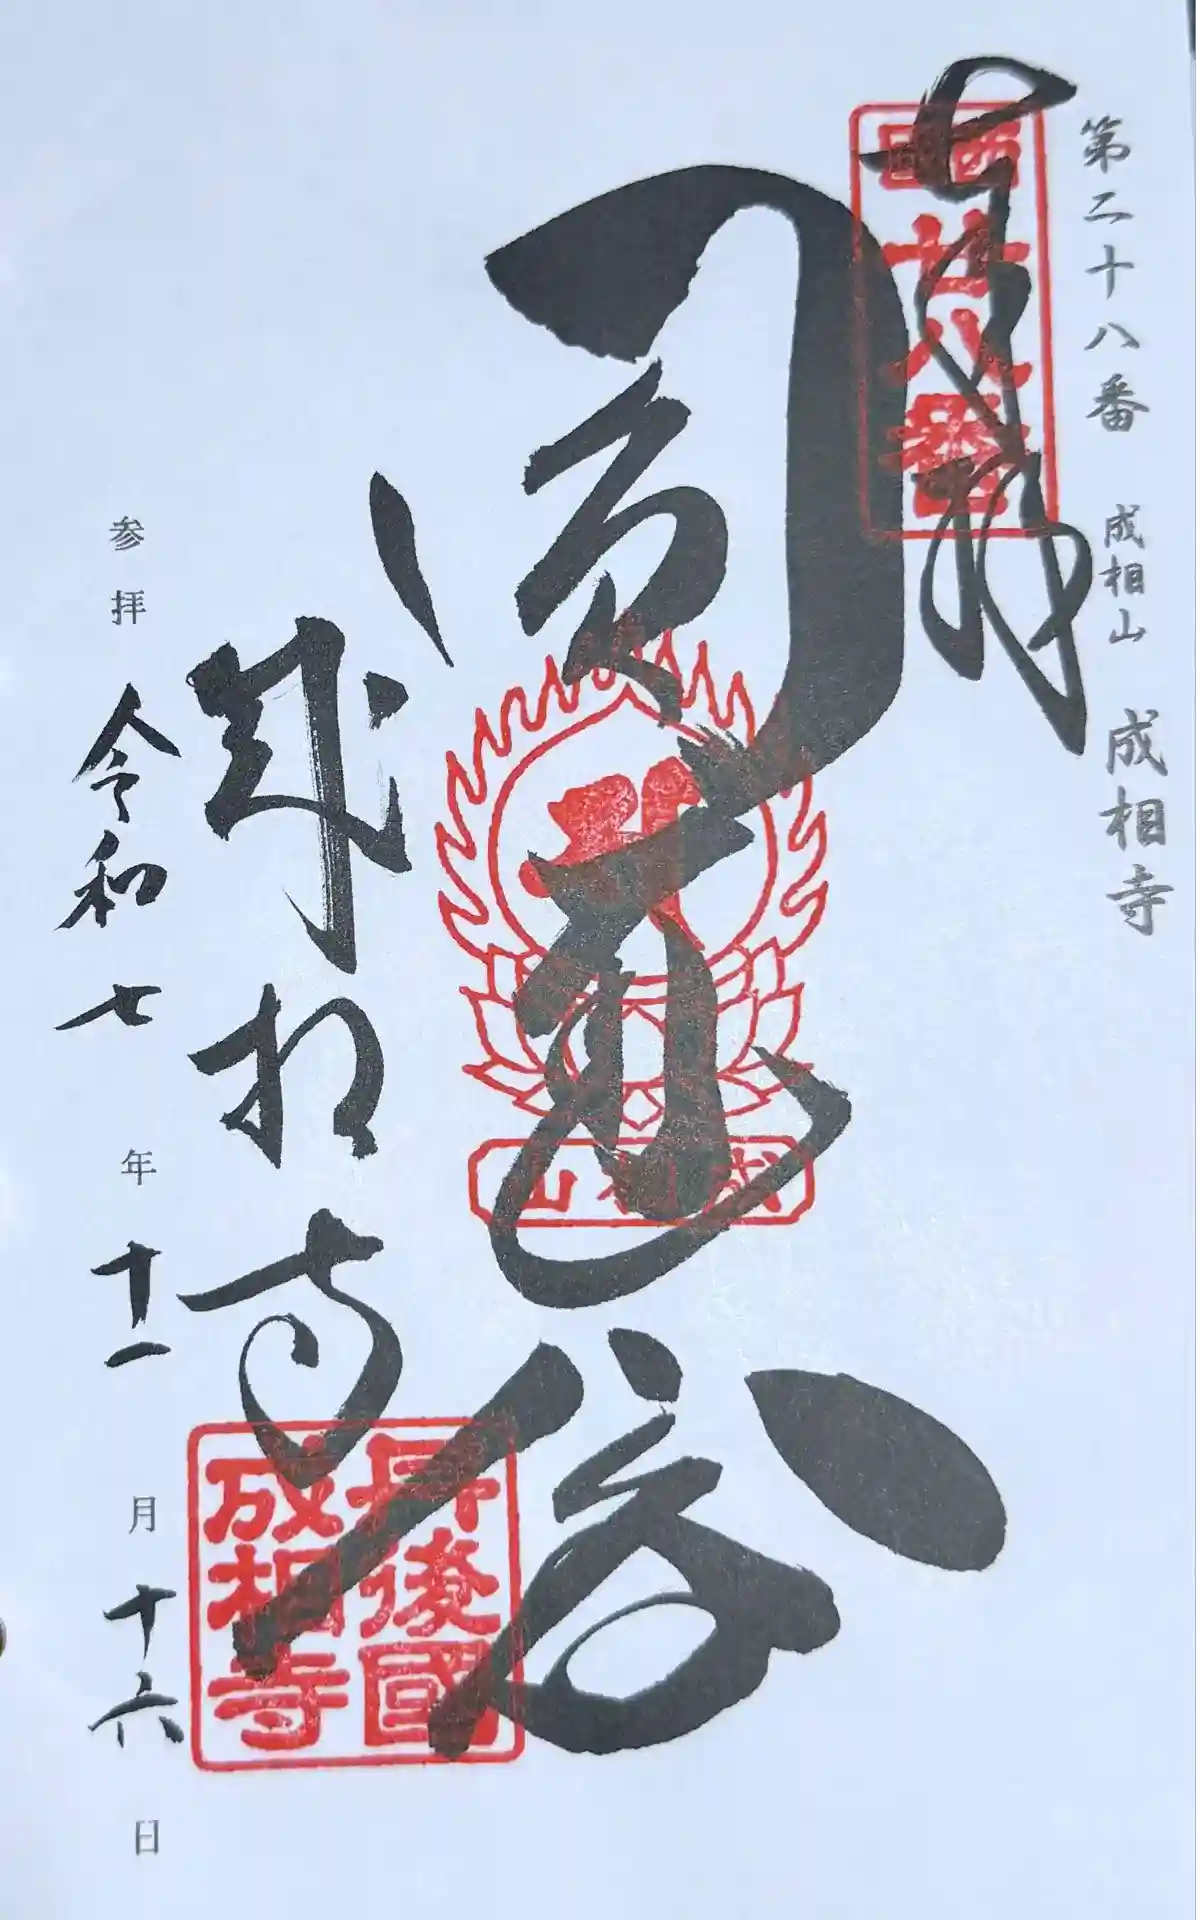 第二十八番 成相山 成相寺
奉拝
西國
廿八番
圓通閣
成相山
成相寺
丹後國
成相寺
参拝 令和七年十一月十六日